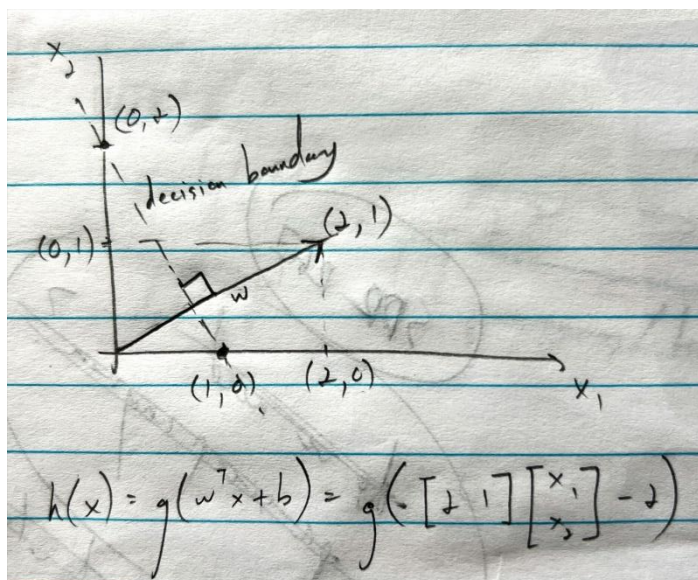 x₂
(0,2)
decision boundary
(0,1)
(2,1)
w
(1,0)
(2,0)
x₁
h(x) = g(wᵀx + b) = g([2 1][x₁ x₂] - 2)